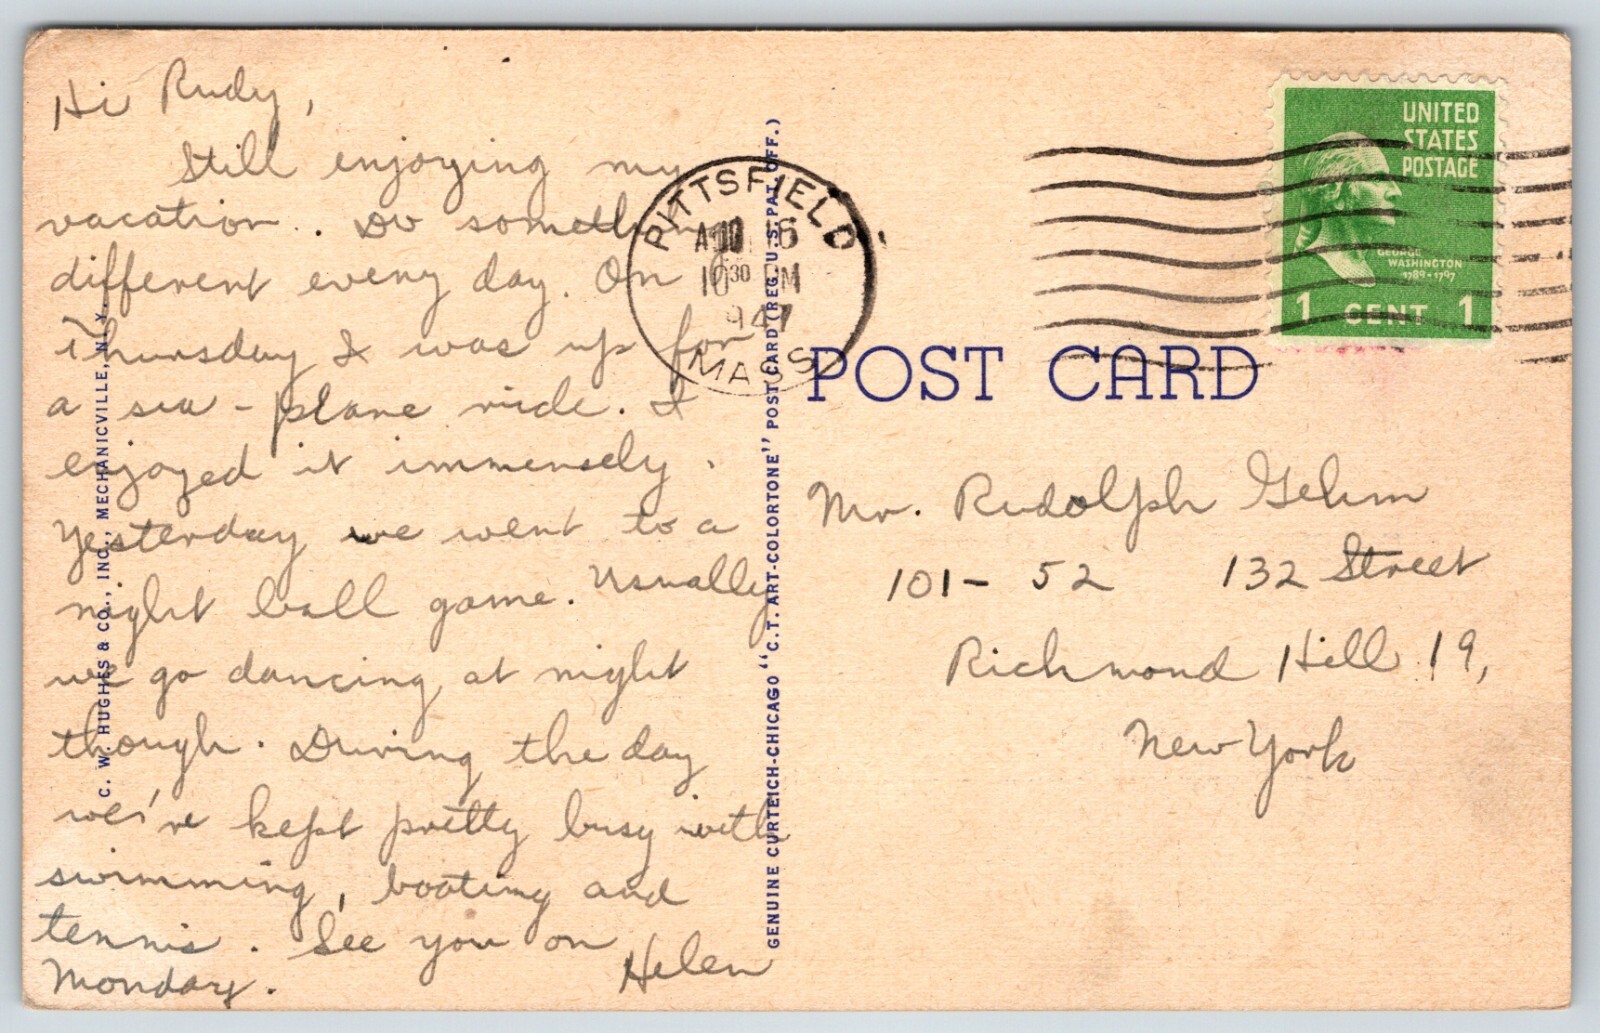 Hi Rudy,
Still enjoying my
vacation. Do something
different every day. On
Thursday I was up for
a sea-plane ride. I
enjoyed it immensely.
Yesterday we went to a
night ball game. Usually
we go dancing at night
though. During the day
we've kept pretty busy with
swimming, boating and
tennis. See you on
Monday.
Helen
C. W. HUGHES & CO., INC., MECHANICVILLE, N. Y.
GENUINE CURTEICH-CHICAGO "C.T. ART-COLORTONE" POST CARD (REG. U.S. PAT. OFF.)
PITTSFIELD
6
10 30 PM
1947
MASS
UNITED
STATES
POSTAGE
GEORGE
WASHINGTON
1789-1797
1 CENT 1
POST CARD
Mr. Rudolph Gehm
101-52 132 Street
Richmond Hill 19,
New York